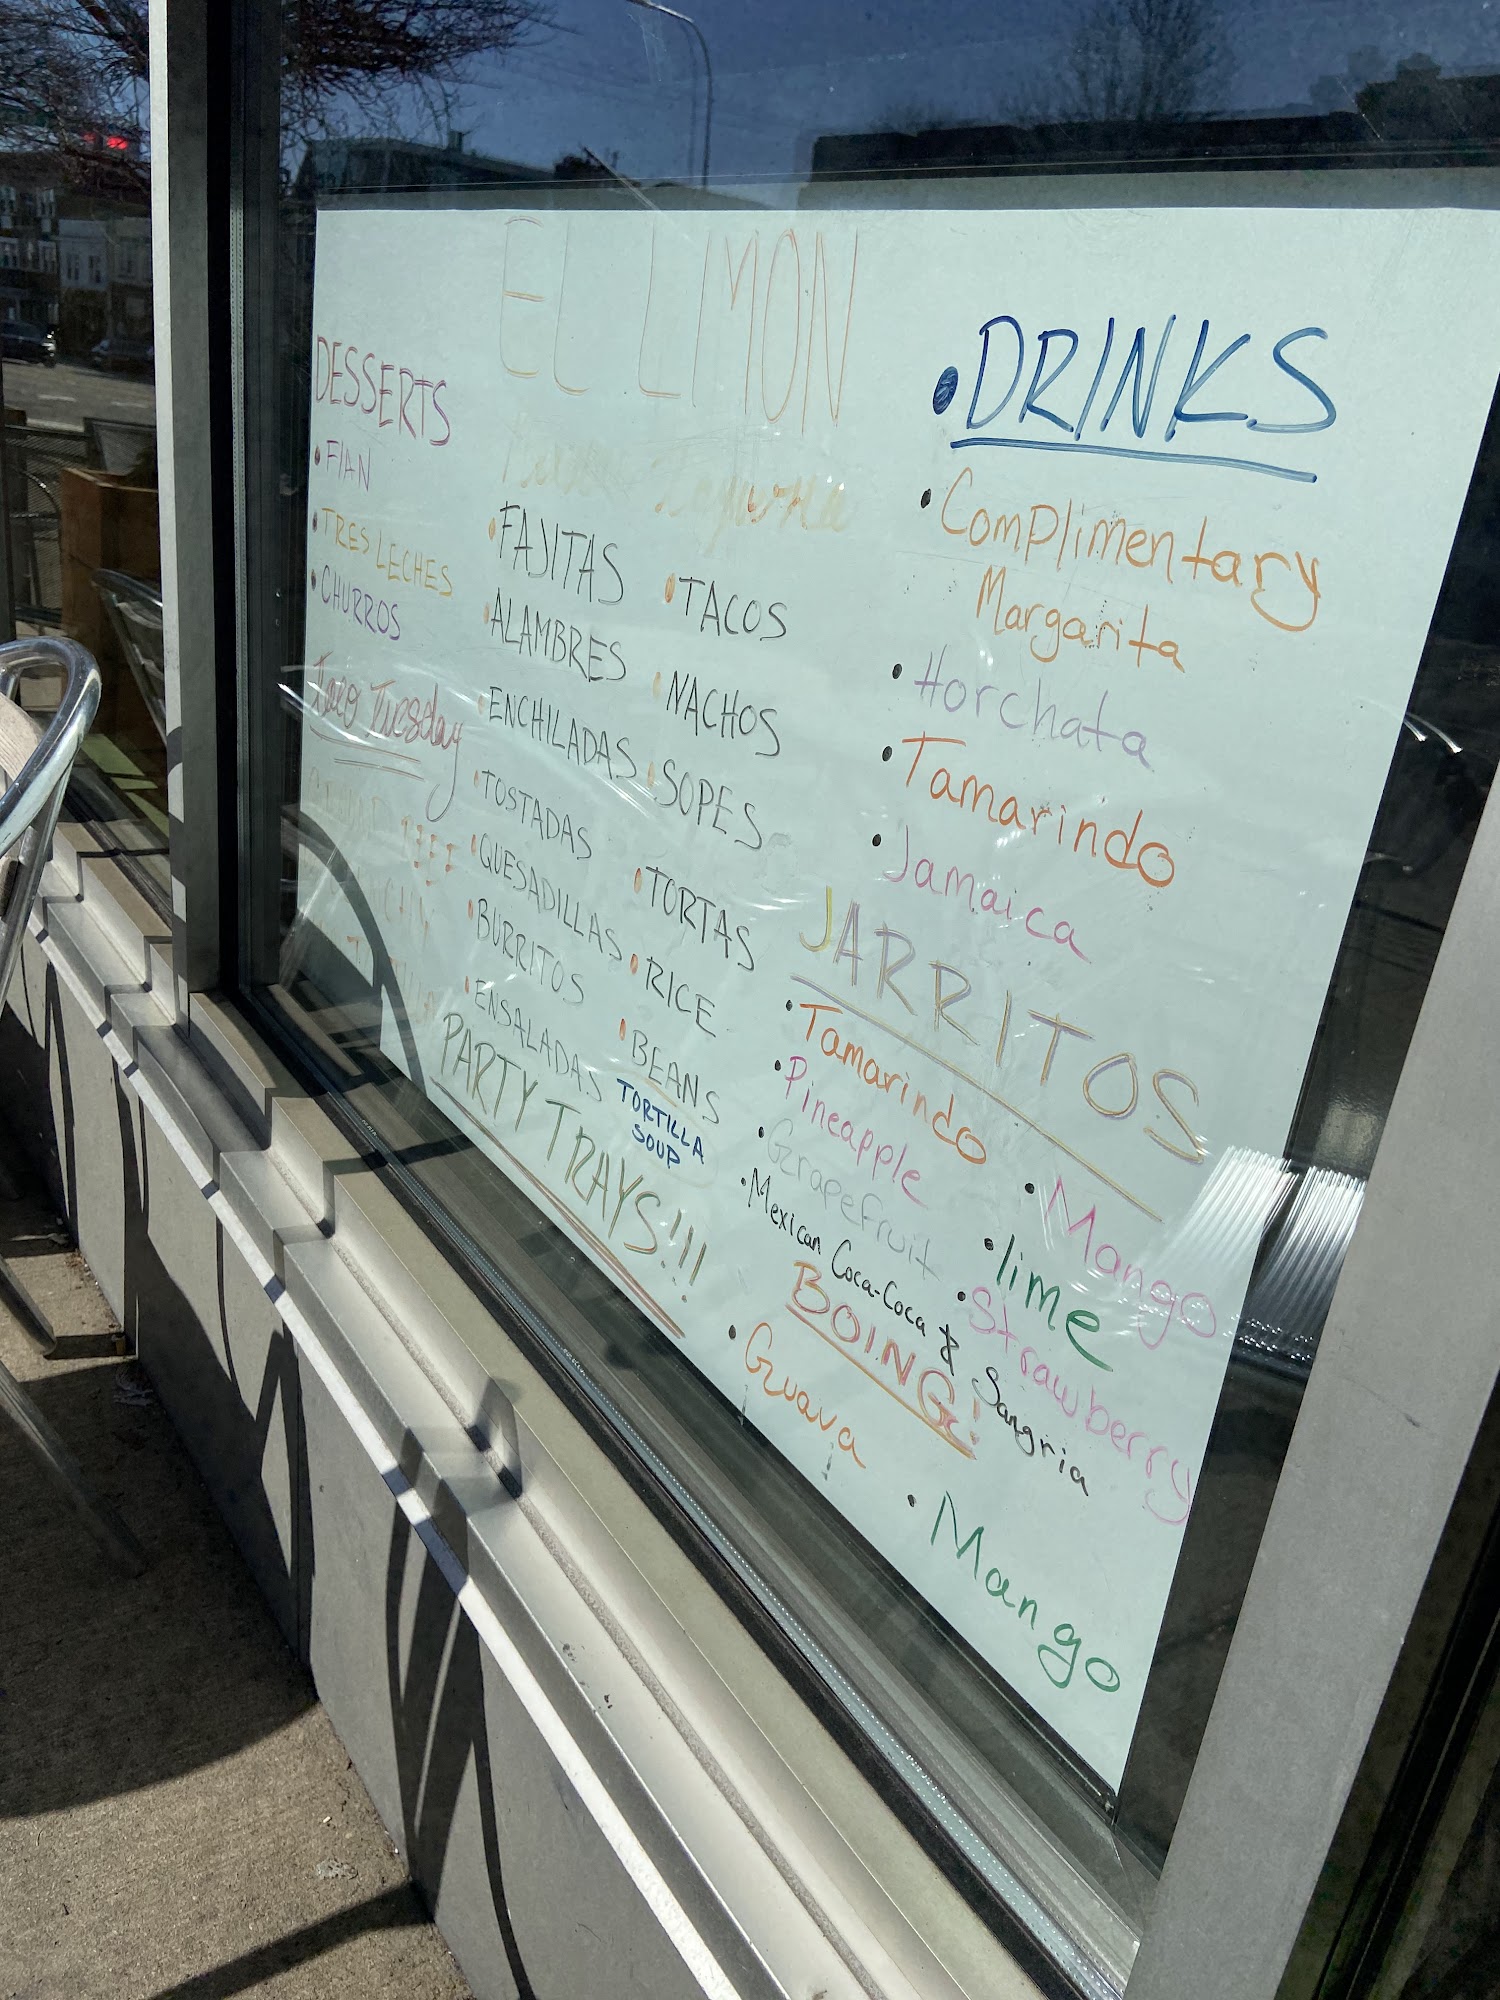 EL LIMON
DESSERTS
• FLAN
• TRES LECHES
• CHURROS
Taco Tuesday
• FAJITAS
• ALAMBRES
• ENCHILADAS
• TOSTADAS
• QUESADILLAS
• BURRITOS
• ENSALADAS
• TACOS
• NACHOS
• SOPES
• TORTAS
• RICE
• BEANS
TORTILLA
SOUP
PARTY TRAYS!!!
• DRINKS
• Complimentary
Margarita
• Horchata
• Tamarindo
• Jamaica
JARRITOS
• Tamarindo
• Pineapple
• Grapefruit
• Mexican Coca-Coca & Sangria
• Mango
• lime
• Strawberry
BOING!
• Guava
• Mango